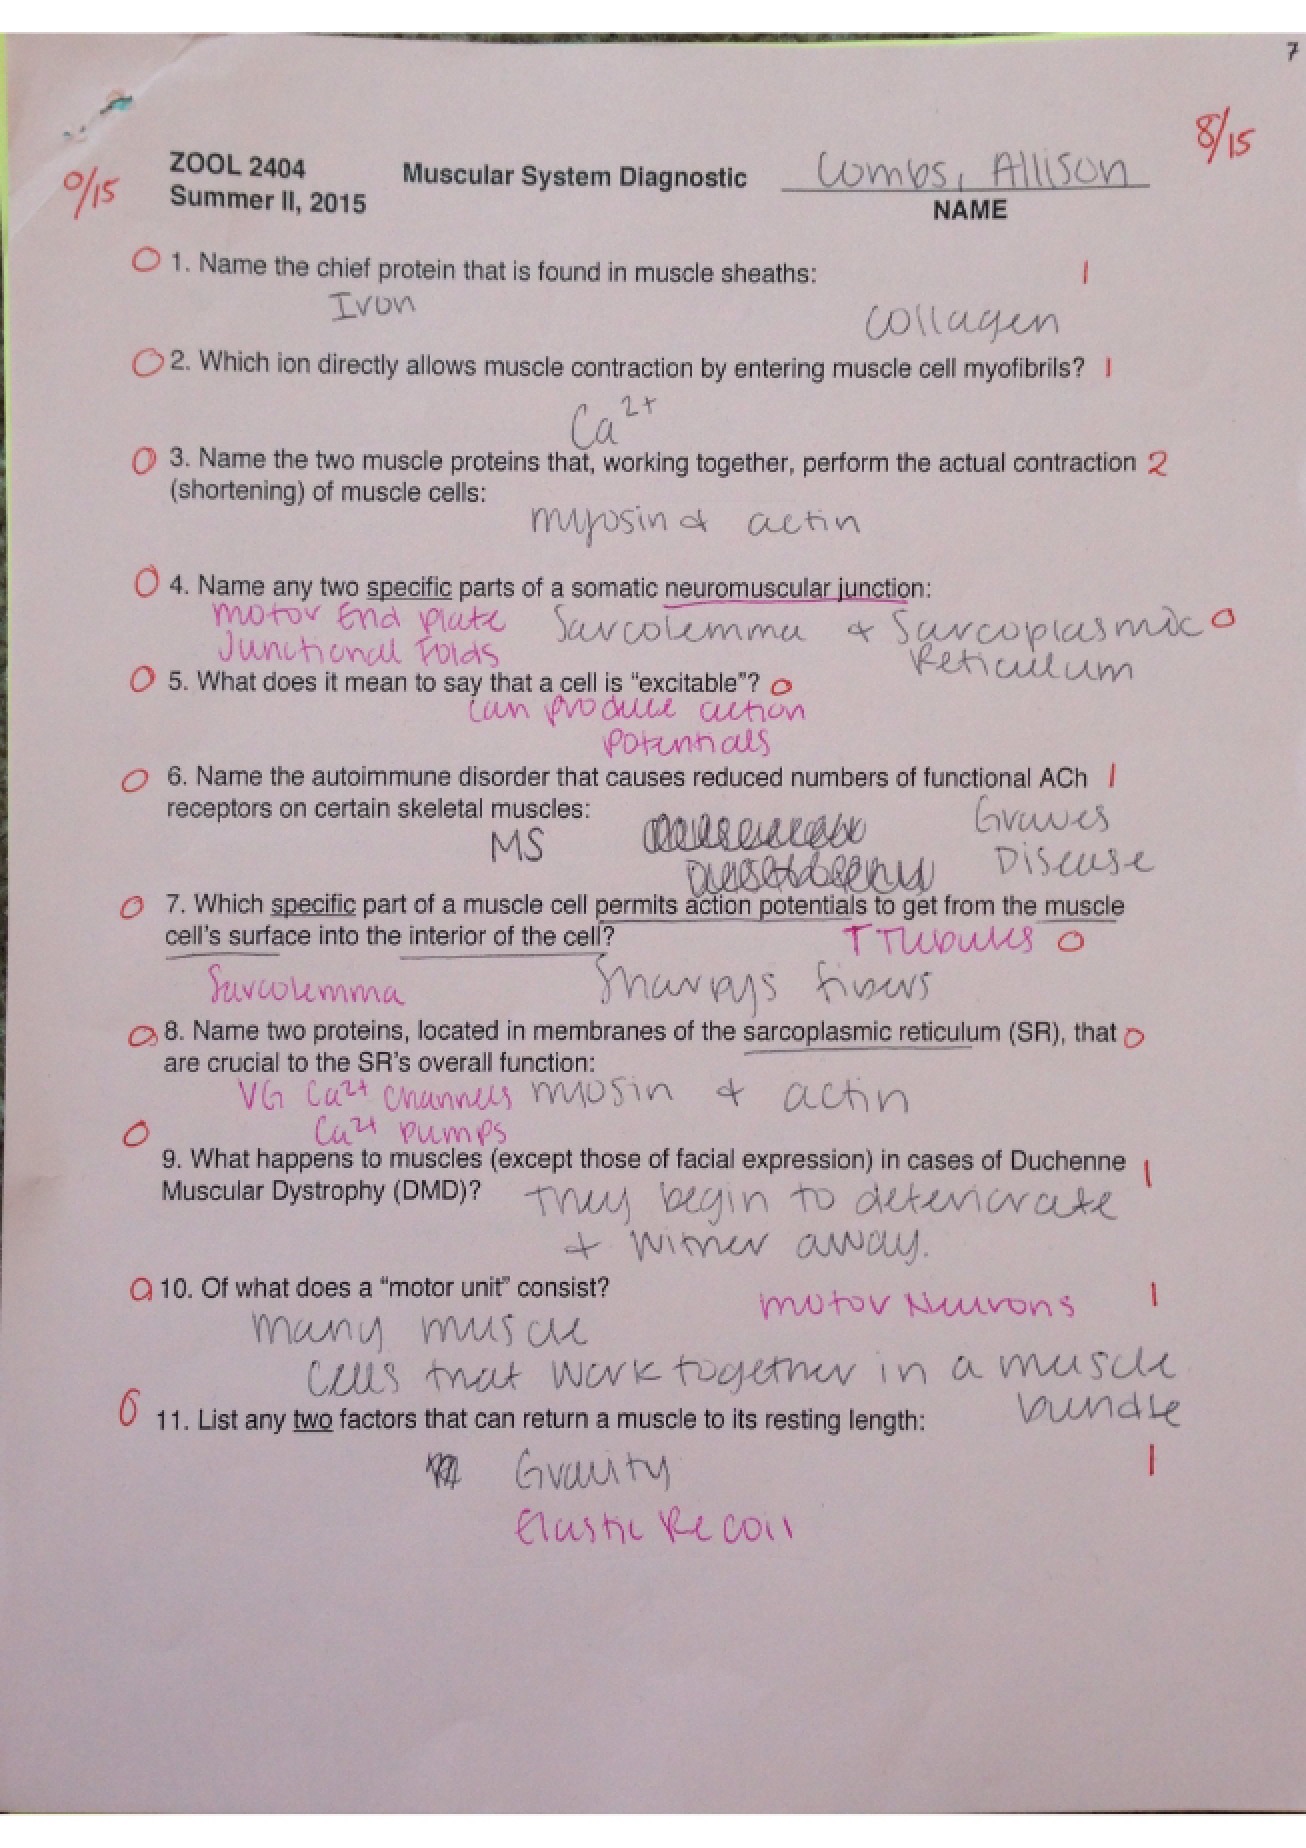 7
8/15
0/15
ZOOL 2404 Muscular System Diagnostic Combs, Allison
Summer II, 2015 NAME
0 1. Name the chief protein that is found in muscle sheaths: 1
Iron collagen
0 2. Which ion directly allows muscle contraction by entering muscle cell myofibrils? 1
Ca²⁺
0 3. Name the two muscle proteins that, working together, perform the actual contraction 2
(shortening) of muscle cells:
myosin & actin
0 4. Name any two specific parts of a somatic neuromuscular junction:
Motor End plate Sarcolemma & Sarcoplasmic 0
Junctional Folds Reticulum
0 5. What does it mean to say that a cell is “excitable”? 0
can produce action
potentials
0 6. Name the autoimmune disorder that causes reduced numbers of functional ACh 1
receptors on certain skeletal muscles:
MS Graves
Disease
0 7. Which specific part of a muscle cell permits action potentials to get from the muscle
cell’s surface into the interior of the cell? T Tubules 0
Sarcolemma Sharpys fibers
0 8. Name two proteins, located in membranes of the sarcoplasmic reticulum (SR), that 0
are crucial to the SR’s overall function:
VG Ca²⁺ channels myosin & actin
Ca²⁺ pumps
0
9. What happens to muscles (except those of facial expression) in cases of Duchenne 1
Muscular Dystrophy (DMD)? They begin to deteriorate
& wither away.
0 10. Of what does a “motor unit” consist? motor Neurons 1
many muscle
cells that work together in a muscle
bundle
0 11. List any two factors that can return a muscle to its resting length:
Gravity 1
Elastic Recoil